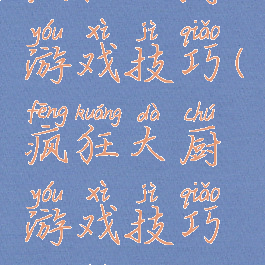 yóu xì jì qiǎo
游戏技巧(
fēng kuáng dà chú
疯狂大厨
yóu xì jì qiǎo
游戏技巧